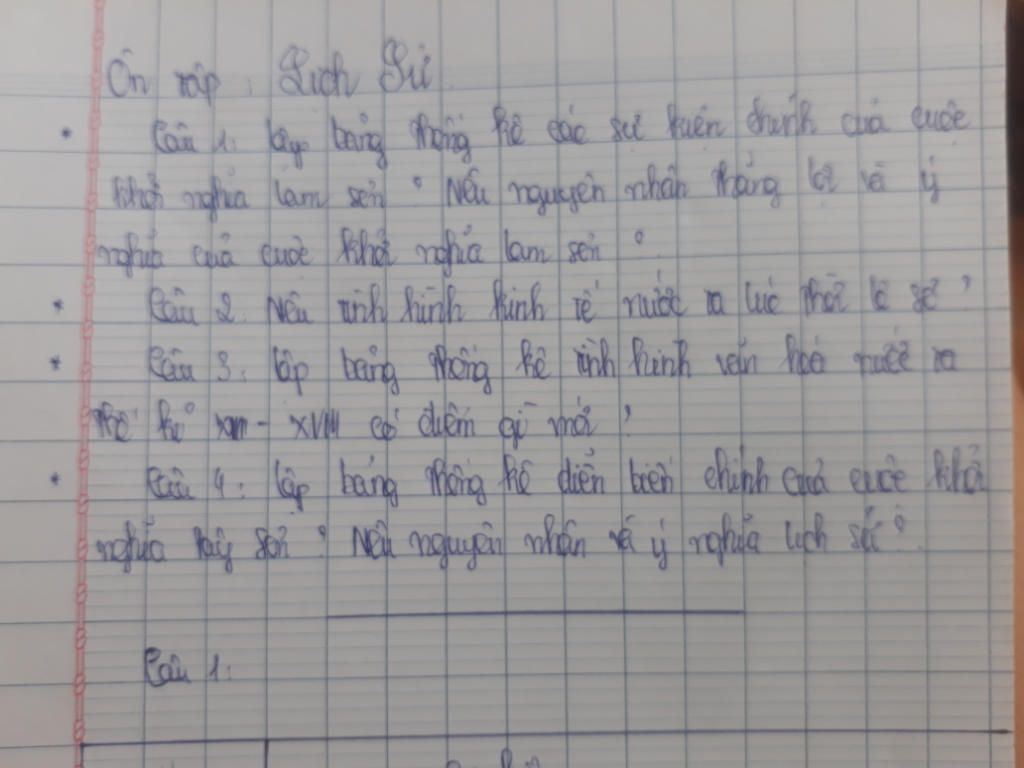 Ôn tập : Lịch Sử
* Câu 1: lập bảng thống kê các sự kiện chính của cuộc
khởi nghĩa lam sơn ? Nêu nguyên nhân thắng lợi và ý
nghĩa của cuộc khởi nghĩa lam sơn ?
* Câu 2. Nêu tình hình kinh tế nước ta lúc thời lê sơ ?
* Câu 3: lập bảng thống kê tình hình văn hoá nước ta
thế kỉ XVI - XVIII có điểm gì mới ?
* Câu 4: lập bảng thống kê diễn biến chính của cuộc khởi
nghĩa tây sơn ? Nêu nguyên nhân và ý nghĩa lịch sử ?
Câu 1: